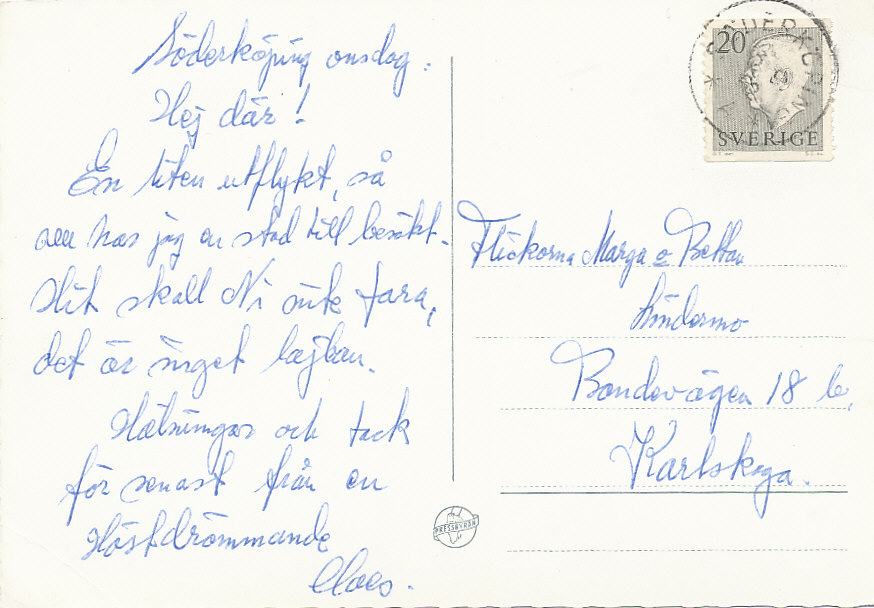 Söderköping onsdag.
Hej där!
En liten utflykt, så
nu har jag en stad till besökt.
Hit skall Ni inte fara,
det är inget lajban.
Hälsningar och tack
för senast från en
Höstdrömmande
Claes.
20
SVERIGE
SÖDERKÖPING
Flickorna Marga o Bettan
Lindermo
Bondevägen 18 b,
Karlskoga.
PRESSBYRÅN